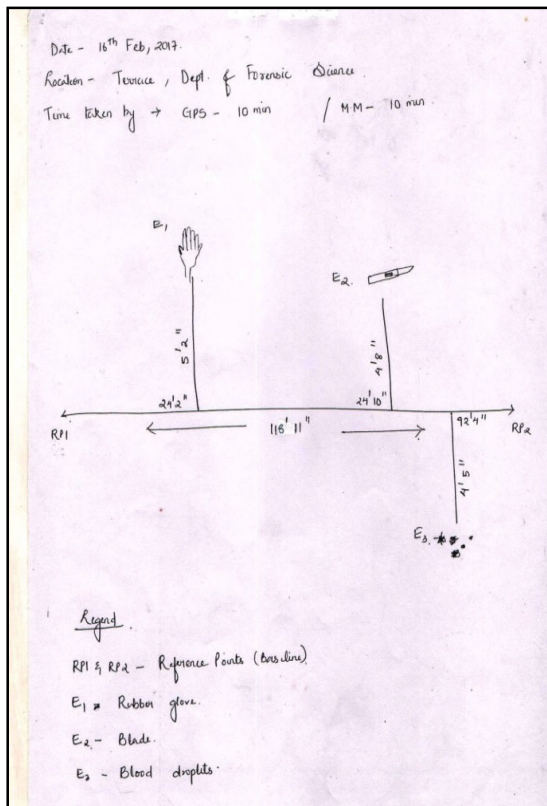 Date - 16th Feb, 2017.
Location - Terrace, Dept. of Forensic Science.
Time taken by → GPS - 10 min / MM - 10 min
E1
E2.
5'2"
4'8"
24'2"
24'10"
92'4"
RP1
118' 11"
RP2
4'5"
E3.
Legend
RP1 & RP2 - Reference Points (Baseline)
E1 Rubber glove.
E2 - Blade.
E3 - Blood droplits.